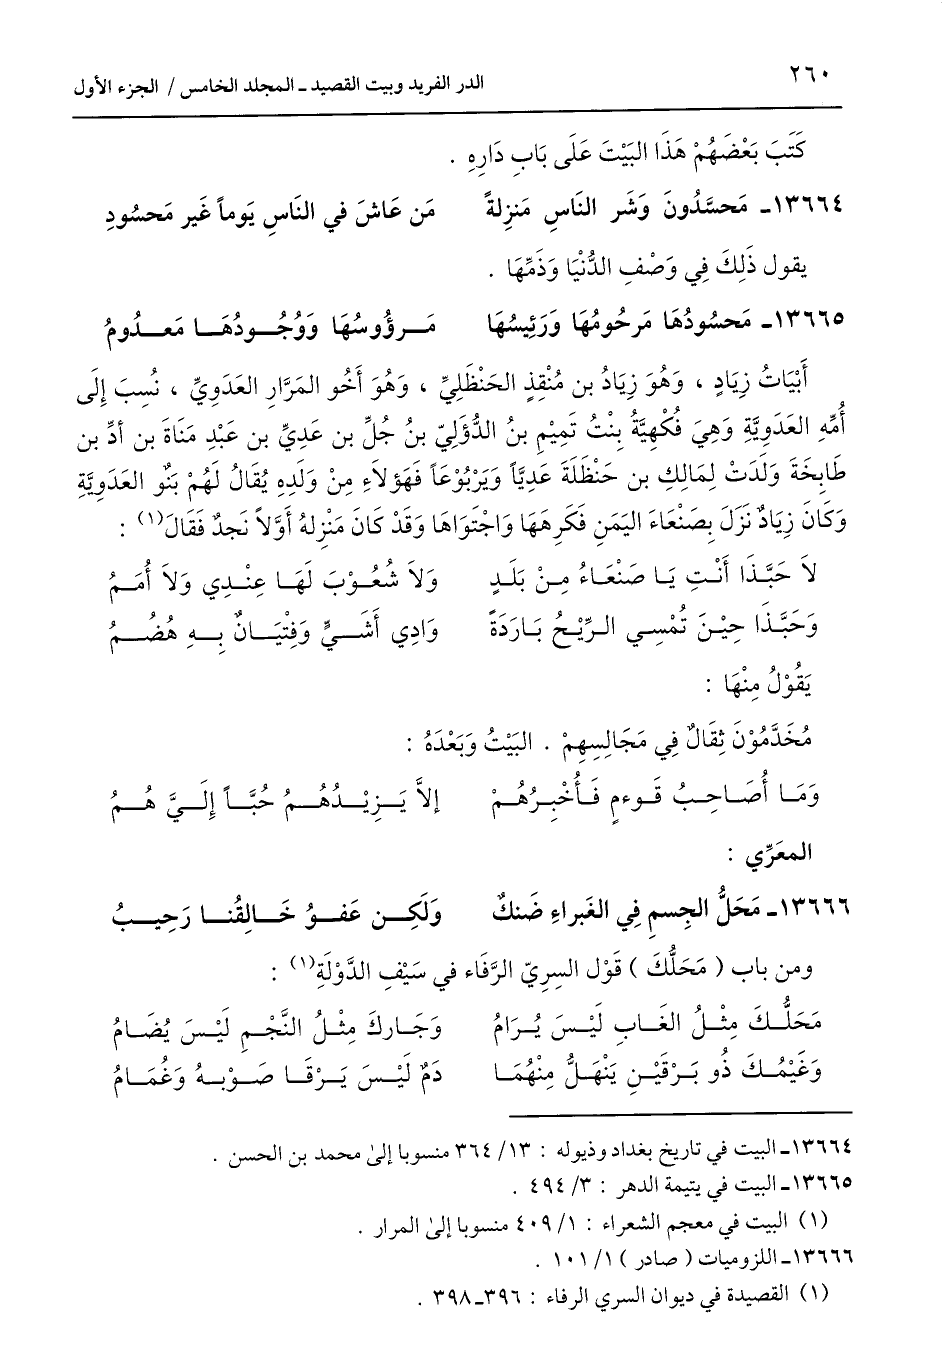 ٢٦٠ الدر الفريد وبيت القصيد ـ المجلد الخامس / الجزء الأول
كَتَبَ بَعْضَهُمْ هَذَا البَيْتَ عَلَى بَابِ دَارِهِ .
١٣٦٦٤ـ مَحسَّدُونَ وَشَر النَاسِ مَنزِلةً مَن عَاشَ في النَاسِ يَوماً غَير مَحسُودِ
يقول ذَلِكَ فِي وَصْفِ الدُّنْيَا وَذَمِّهَا .
١٣٦٦٥ـ مَحسُودُهَا مَرحُومُهَا وَرَئِيسُهَا مَـرؤُوسُهَا وَوُجُـودُهَـا مَعـدُومُ
أَبْيَاتُ زِيَادٍ ، وَهُوَ زِيَادُ بن مُنْقِذٍ الحَنْظَلِيِّ ، وَهُوَ أَخُو المَرَّارِ العَدَوِيِّ ، نُسِبَ إِلَى
أُمِّهِ العَدَوِيَّةِ وَهِيَ فَكْهِيَّةُ بِنْتُ تَمِيْمِ بنُ الدُّؤَلِيّ بنُ جُلِّ بن عَدِيِّ بن عَبْدِ مَنَاةَ بن أدِّ بن
طَابِخَةَ وَلَدَتْ لِمَالِكِ بن حَنْظَلَةَ عَدِيَّاً وَيَرْبُوْعَاً فَهَؤُلاَءِ مِنْ وَلَدِهِ يُقَالُ لَهُمْ بَنُو العَدَوِيَّةِ
وَكَانَ زِيَادٌ نَزَلَ بِصَنْعَاءَ اليَمَنِ فَكَرِهَهَا وَاجْتَوَاهَا وَقَدْ كَانَ مَنْزِلهُ أَوَّلاً نَجدٌ فَقَالَ(١) :
لاَ حَبَّـذَا أَنْتِ يَـا صَنْعَاءُ مِـنْ بَلَـدٍ وَلاَ شُعُـوْبَ لَهَـا عِنْـدِي وَلاَ أُمَـمُ
وَحَبَّـذَا حِيْـنَ تُمْسِـي الـرِّيْـحُ بَـارَدَةً وَادِي أَشَـيٍّ وَفِتْيَـانٌ بِـهِ هُضُـمُ
يَقُوْلُ مِنْهَا :
مُخَدَّمُوْنَ ثِقَالٌ فِي مَجَالِسِهِمْ . البَيْتُ وَبَعْدَهُ :
وَمَـا أُصَـاحِـبُ قَـوءمٍ فَـأُخْبِـرُهُـمْ إلاَّ يَـزِيْـدُهُـمُ حُبَّـاً إِلَـيَّ هُـمُ
المعَرِّي :
١٣٦٦٦ـ مَحَلُّ الجِسمِ فِي الغَبراءِ ضَنكٌ وَلَكِـن عَفـوُ خَـالِقُنـا رَحِيـبُ
ومن باب ( مَحَلُّكَ ) قَوْل السريّ الرَّفَاء في سَيْفِ الدَّوْلَةِ(١) :
مَحَلُّـكَ مِثْـلُ الغَـابِ لَيْـسَ يُـرَامُ وَجَـارِكَ مِثْـلُ النَّجْـمِ لَيْـسَ يُضَـامُ
وَغَيْمُـكَ ذُو بَـرْقَيْـنِ يَنْهَـلُّ مِنْهُمَـا دَمٌ لَيْـسَ يَـرْقَـا صَـوْبـهُ وَغَمَـامُ
١٣٦٦٤ـ البيت في تاريخ بغداد وذيوله : ١٣/ ٣٦٤ منسوبا إلىٰ محمد بن الحسن .
١٣٦٦٥ـ البيت في يتيمة الدهر : ٣/ ٤٩٤ .
(١) البيت في معجم الشعراء : ١/ ٤٠٩ منسوبا إلىٰ المرار .
١٣٦٦٦ـ اللزوميات ( صادر ) ١/ ١٠١ .
(١) القصيدة في ديوان السري الرفاء : ٣٩٦ـ٣٩٨ .